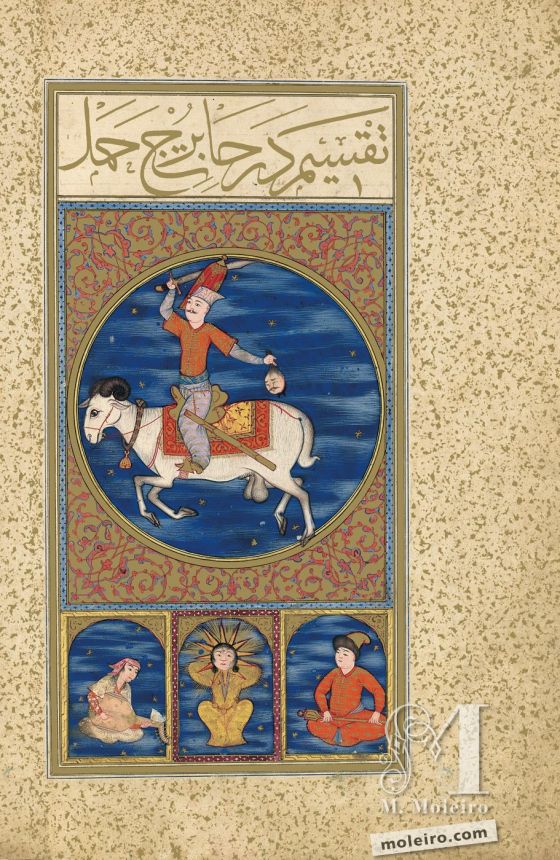 تقسیم درجات برج حمل
M
M. Moleiro
moleiro.com